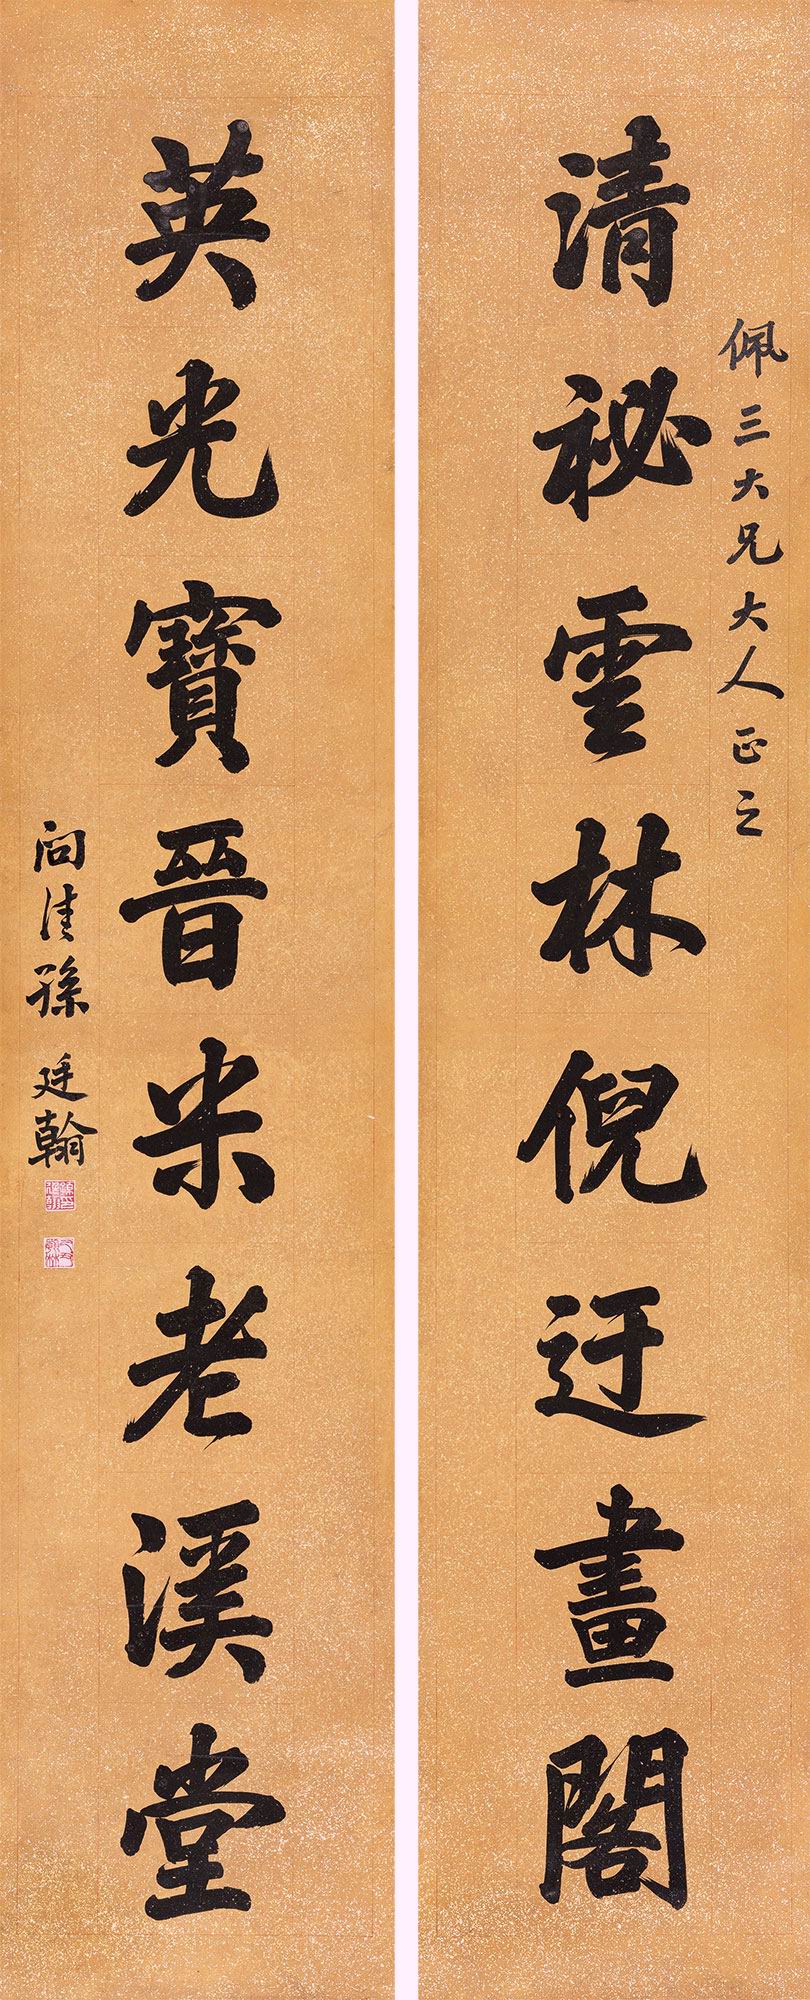 佩三大兄大人正之
清祕雲林倪迂畫閣
英光寶晉米老溪堂
問清孫廷翰